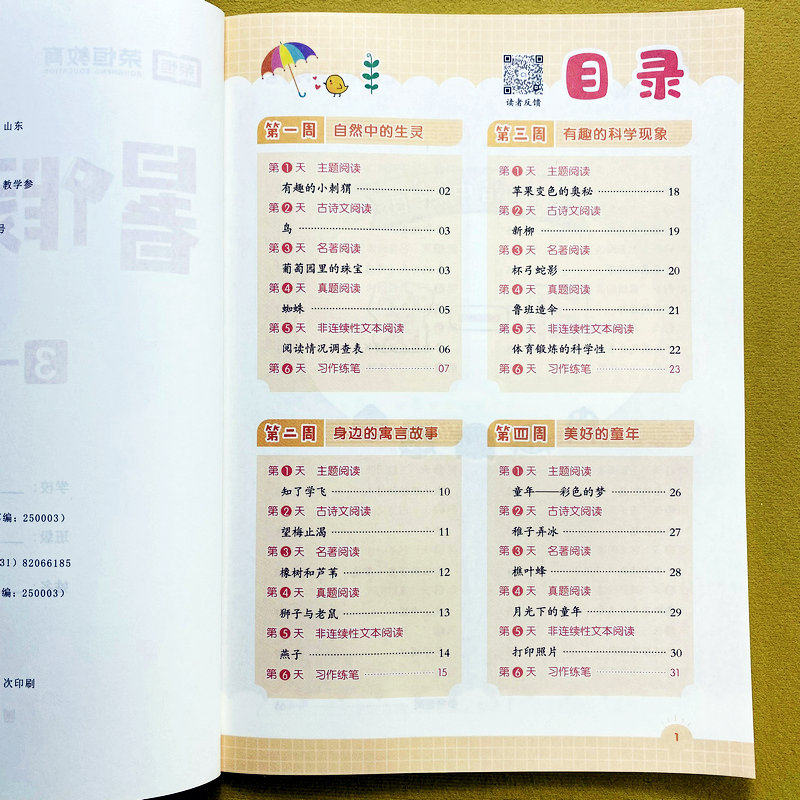 山东
教学参
号
编：250003）
31）82066185
编：250003）
次印刷
目录
读者反馈
第一周 自然中的生灵
第1天 主题阅读
有趣的小刺猬 02
第2天 古诗文阅读
鸟 03
第3天 名著阅读
葡萄园里的珠宝 03
第4天 真题阅读
蜘蛛 05
第5天 非连续性文本阅读
阅读情况调查表 06
第6天 习作练笔 07
第二周 身边的寓言故事
第1天 主题阅读
知了学飞 10
第2天 古诗文阅读
望梅止渴 11
第3天 名著阅读
橡树和芦苇 12
第4天 真题阅读
狮子与老鼠 13
第5天 非连续性文本阅读
燕子 14
第6天 习作练笔 15
第三周 有趣的科学现象
第1天 主题阅读
苹果变色的奥秘 18
第2天 古诗文阅读
新柳 19
第3天 名著阅读
杯弓蛇影 20
第4天 真题阅读
鲁班造伞 21
第5天 非连续性文本阅读
体育锻炼的科学性 22
第6天 习作练笔 23
第四周 美好的童年
第1天 主题阅读
童年——彩色的梦 26
第2天 古诗文阅读
稚子弄冰 27
第3天 名著阅读
樵叶蜂 28
第4天 真题阅读
月光下的童年 29
第5天 非连续性文本阅读
打印照片 30
第6天 习作练笔 31
1